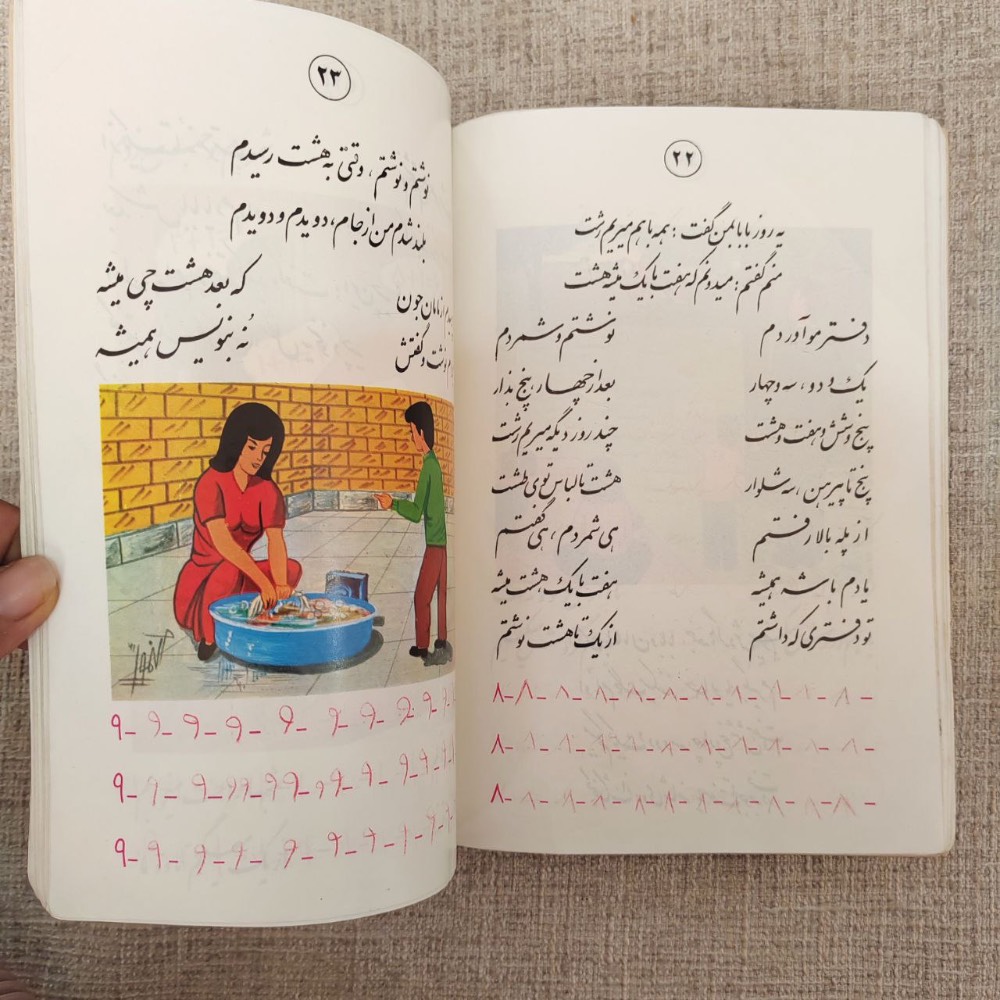 ۲۲
یه روز بابا بمن گفت : همه با هم میریم رشت
منم گفتم : میدونم که هفت با یک میشه هشت
دفتر مو آوردم نوشتم و شمردم
یک و دو ، سه و چهار بعد از چهار ، پنج بذار
پنج و شش و هفت و هشت چند روز دیگه میریم رشت
پنج تا پیرهن ، سه شلوار هشت تا لباس توی طشت
از پله بالا رفتم هی شمردم ، هی گفتم
یادم باشه همیشه هفت با یک هشت میشه
تو دفتری که داشتم از یک تا هشت نوشتم
۸-۸-۸-۸-۸-۸-۸-۸-۸-۸-۸-
۸-۸-۸-۸-۸-۸-۸-۸-۸-۸-
۸-۸-۸-۸-۸-۸-۸-۸-۸-۸-
۲۳
نوشتم و نوشتم ، وقتی به هشت رسیدم
بلند شدم من از جام ، دویدم و دویدم
از مامان جون که بعد هشت چی میشه
نوشت و گفتش نُه بنویس همیشه
۹-۹-۹-۹-۹-۹-۹-۹-۹-۹
۹-۹-۹-۹۹-۹۹-۹۹-۹-۹-۹-۹
۹-۹-۹-۹-۹-۹-۹-۹-۹-۹